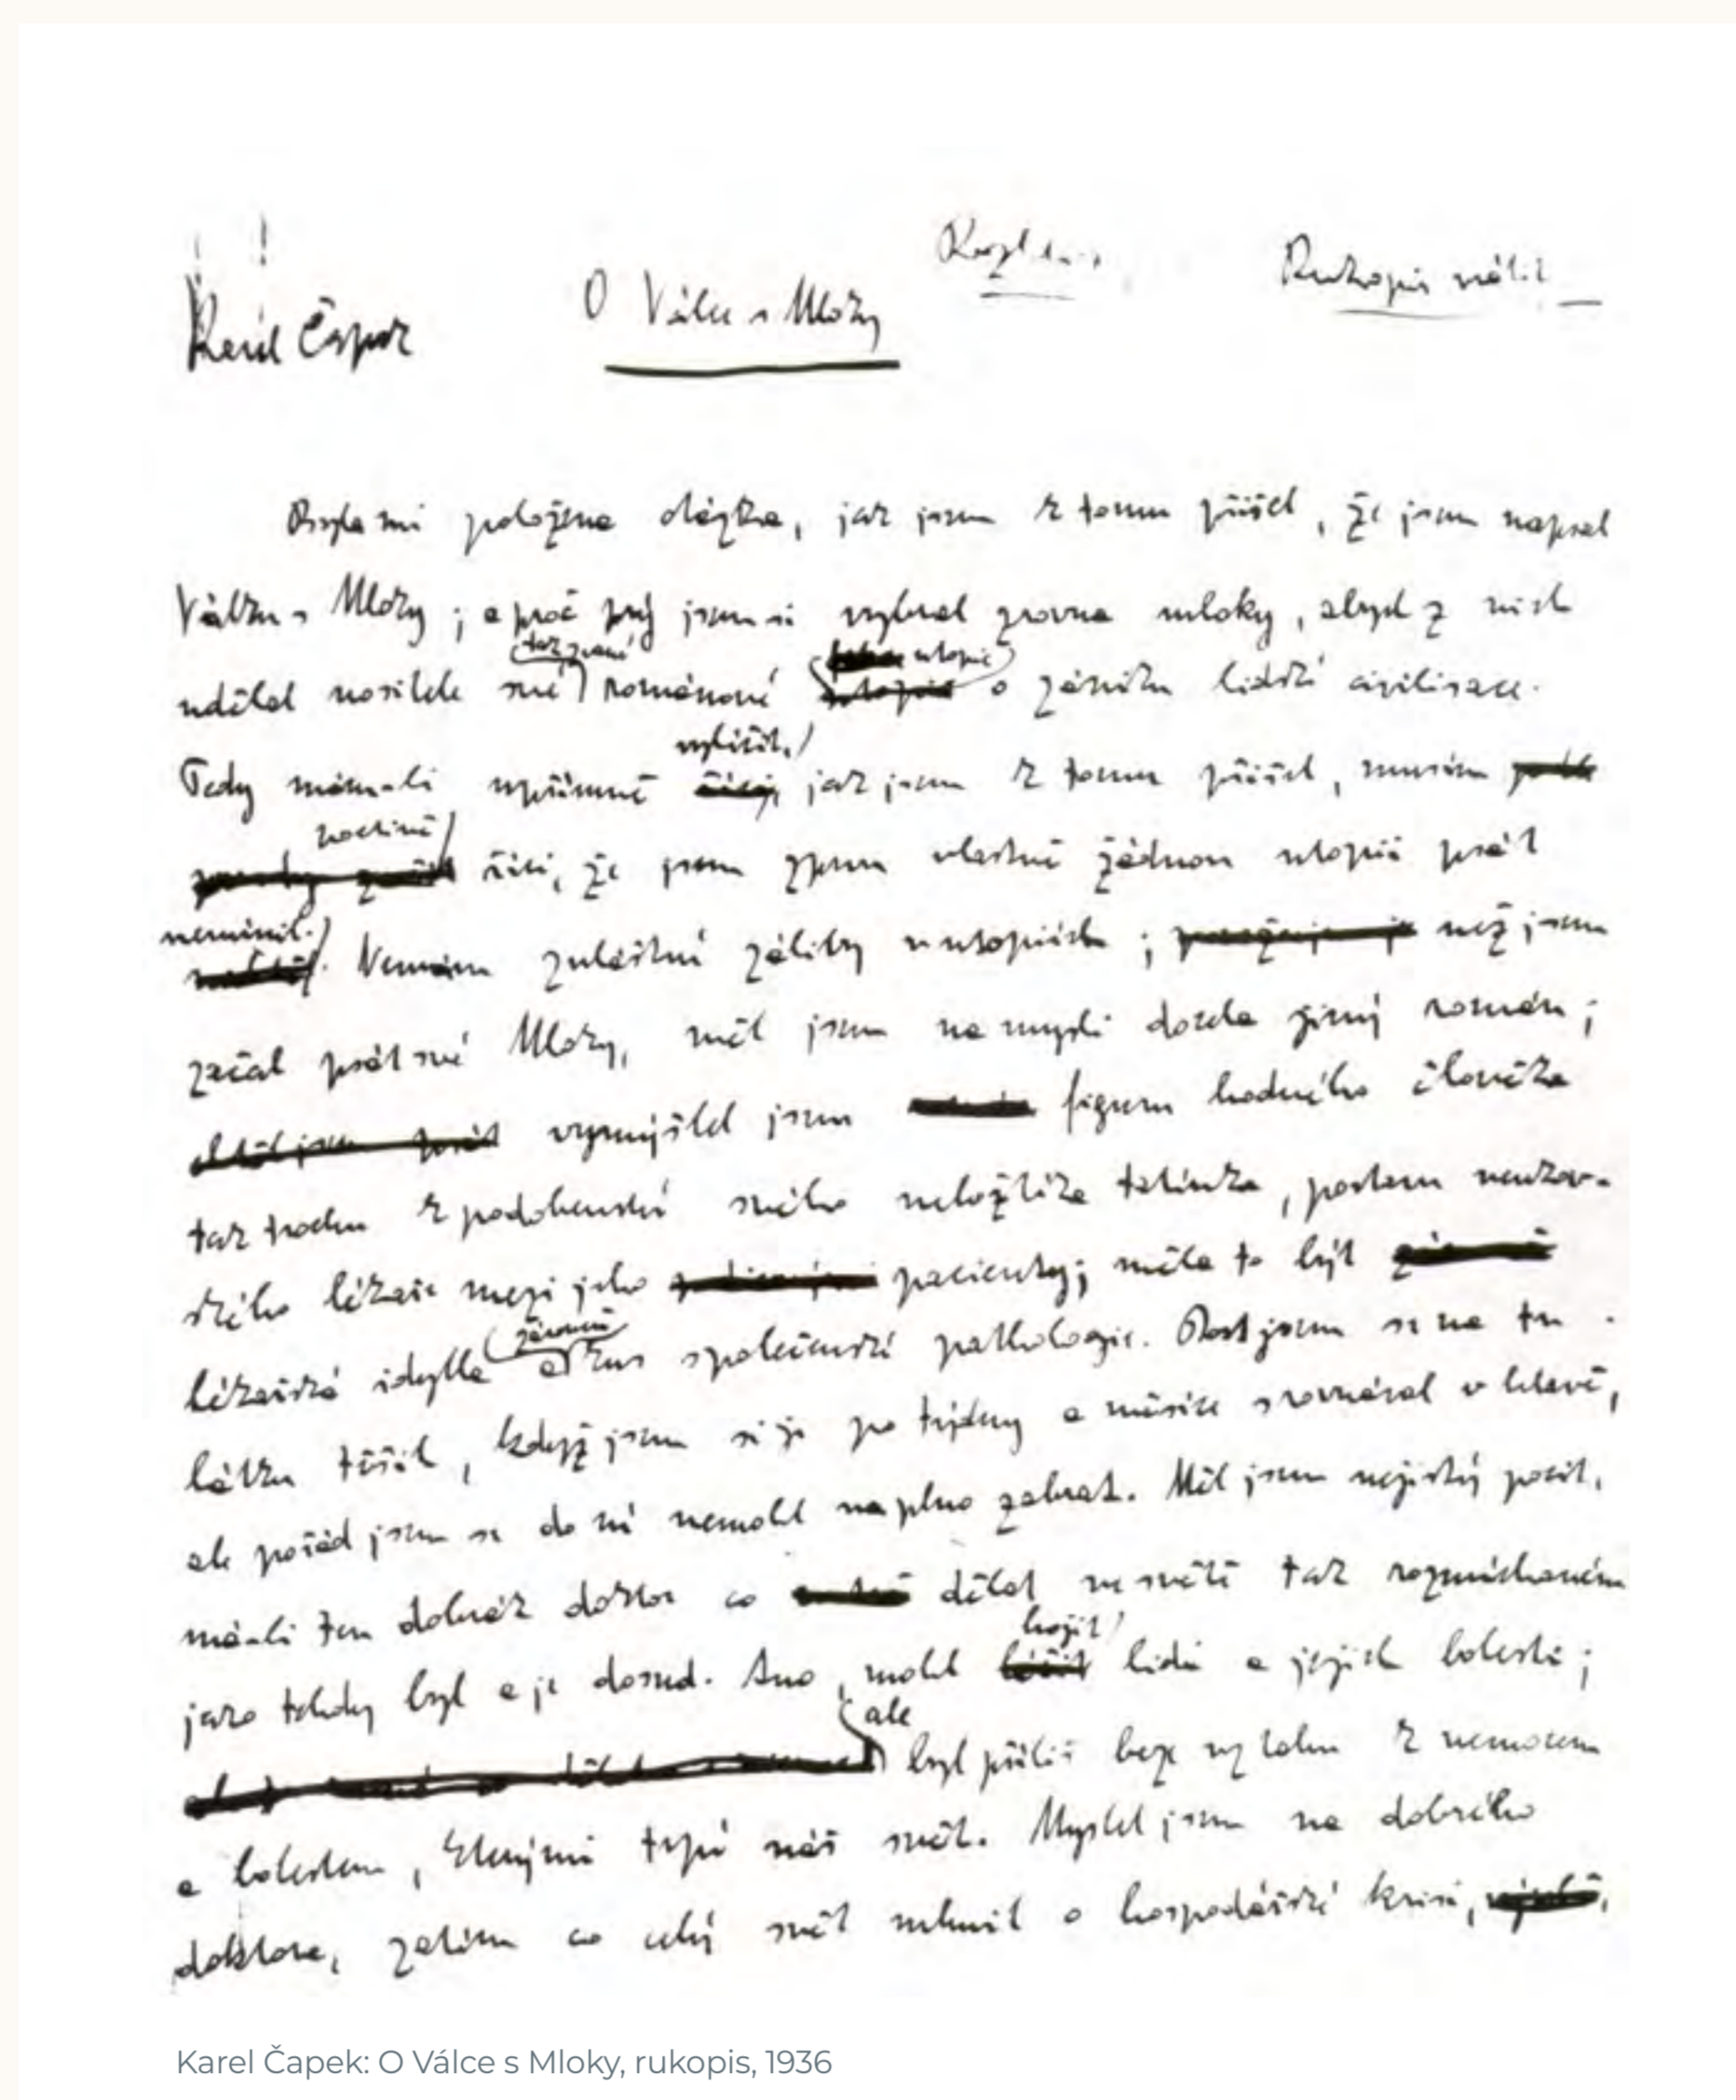 Karel Čapek
O Válce s Mloky
Rukopis vrátit
Byla mi položena otázka, jak jsem k tomu přišel, že jsem napsal
Válku s Mloky; a proč prý jsem si vybral zrovna mloky, abych z nich
tak zvané utopie
udělal nositele své románové o zániku lidské civilisace.
vylíčit,
Tedy mám-li upřímně jak jsem k tomu přišel, musím
poctivě
říci, že jsem zprvu vlastně žádnou utopii psát
nemínil.
Nemám zvláštní záliby v utopiích; než jsem
začal psát své Mloky, měl jsem na mysli docela jiný román;
vymýšlel jsem figuru hodného člověka
tak trochu k podobenství svého nebožtíka tatínka, postavu venkov-
ského lékaře mezi jeho pacienty; měla to být
zároveň
lékařská idylla a kus společenské pathologie. Dost jsem se na tu
látku těšil, když jsem si ji po týdny a měsíce srovnával v hlavě,
ale pořád jsem se do ní nemohl naplno zabrat. Měl jsem nejistý pocit,
má-li ten dobrák doktor co dělat ve světě tak rozmíchaném
hojit
jako tehdy byl a je dosud. Ano, mohl lidi a jejich bolesti;
ale
byl příliš beze vztahu k nemocem
a bolestem, kterými trpí náš svět. Myslel jsem na dobrého
doktora, zatím co celý svět mluvil o hospodářské krisi,
Karel Čapek: O Válce s Mloky, rukopis, 1936